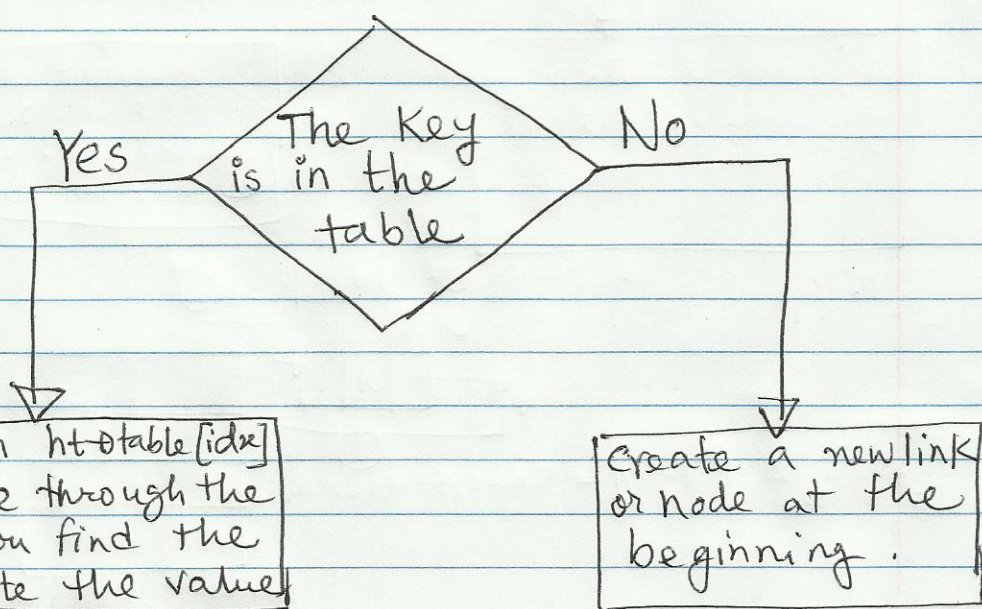 The Key
is in the
table
Yes
No
ht→table[idx]
through the
find the
the value
create a new link
or node at the
beginning.